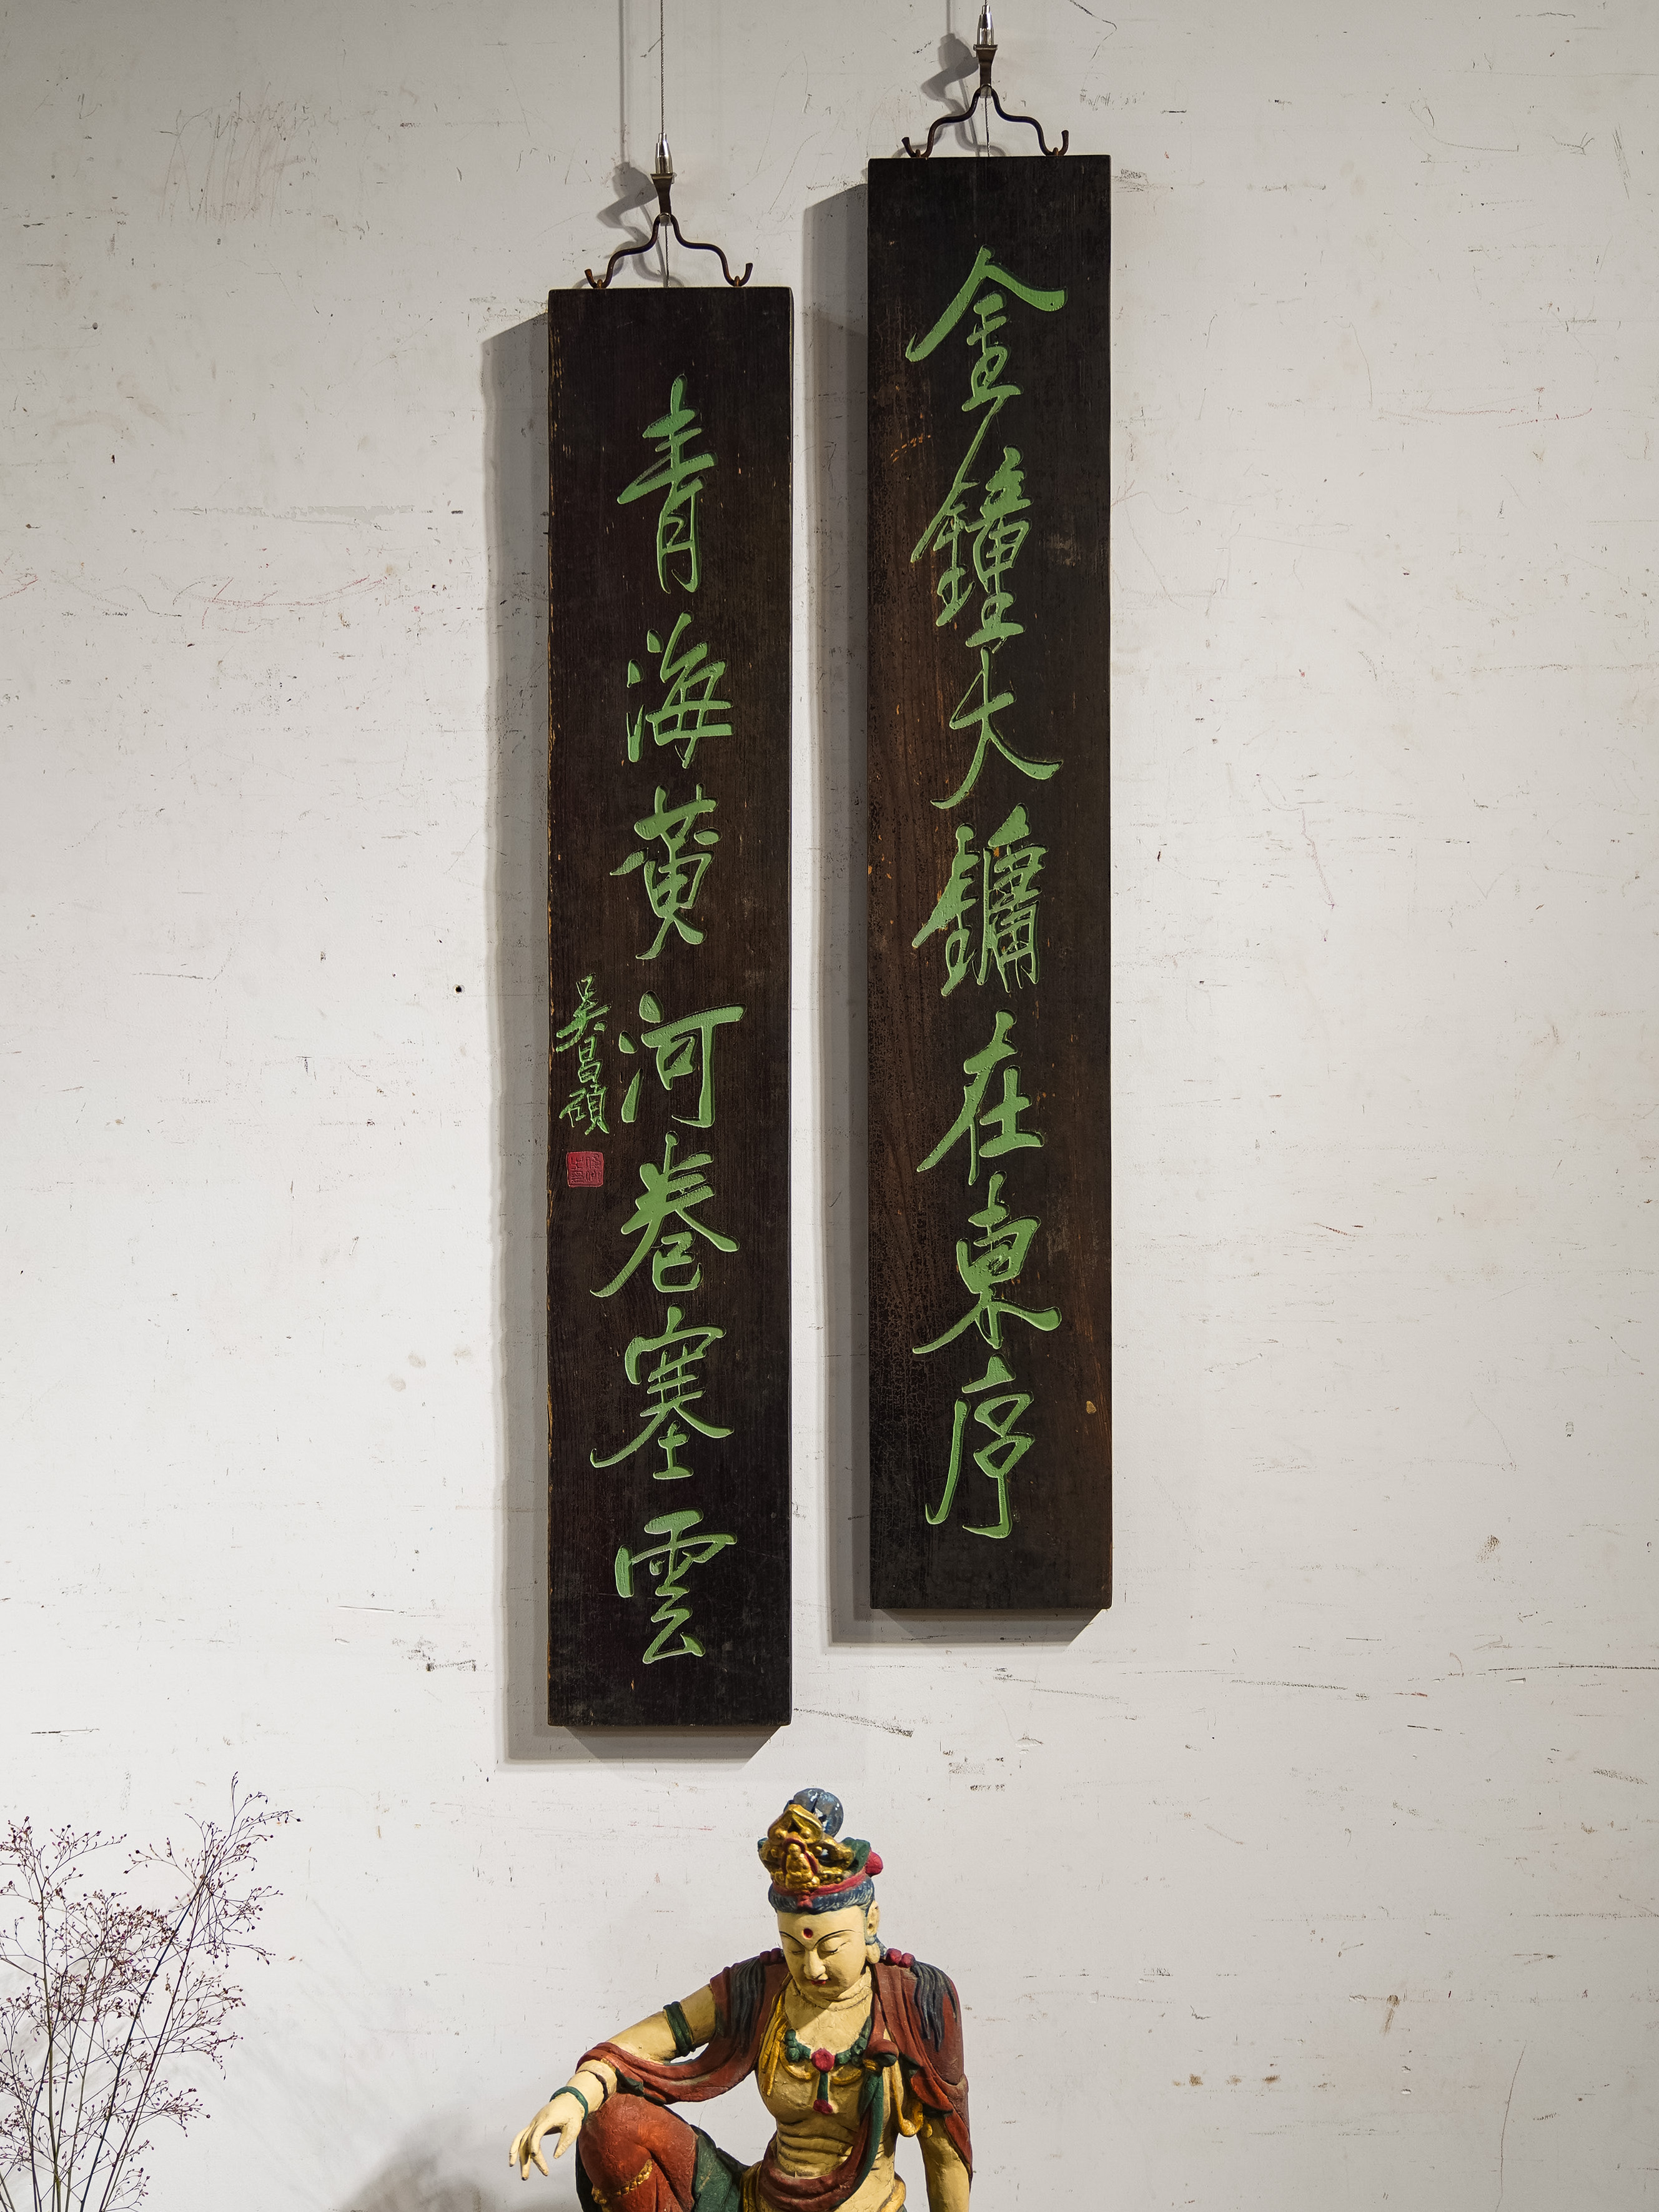 金鐘大鏞在東序
青海黃河卷塞雲
吳昌碩